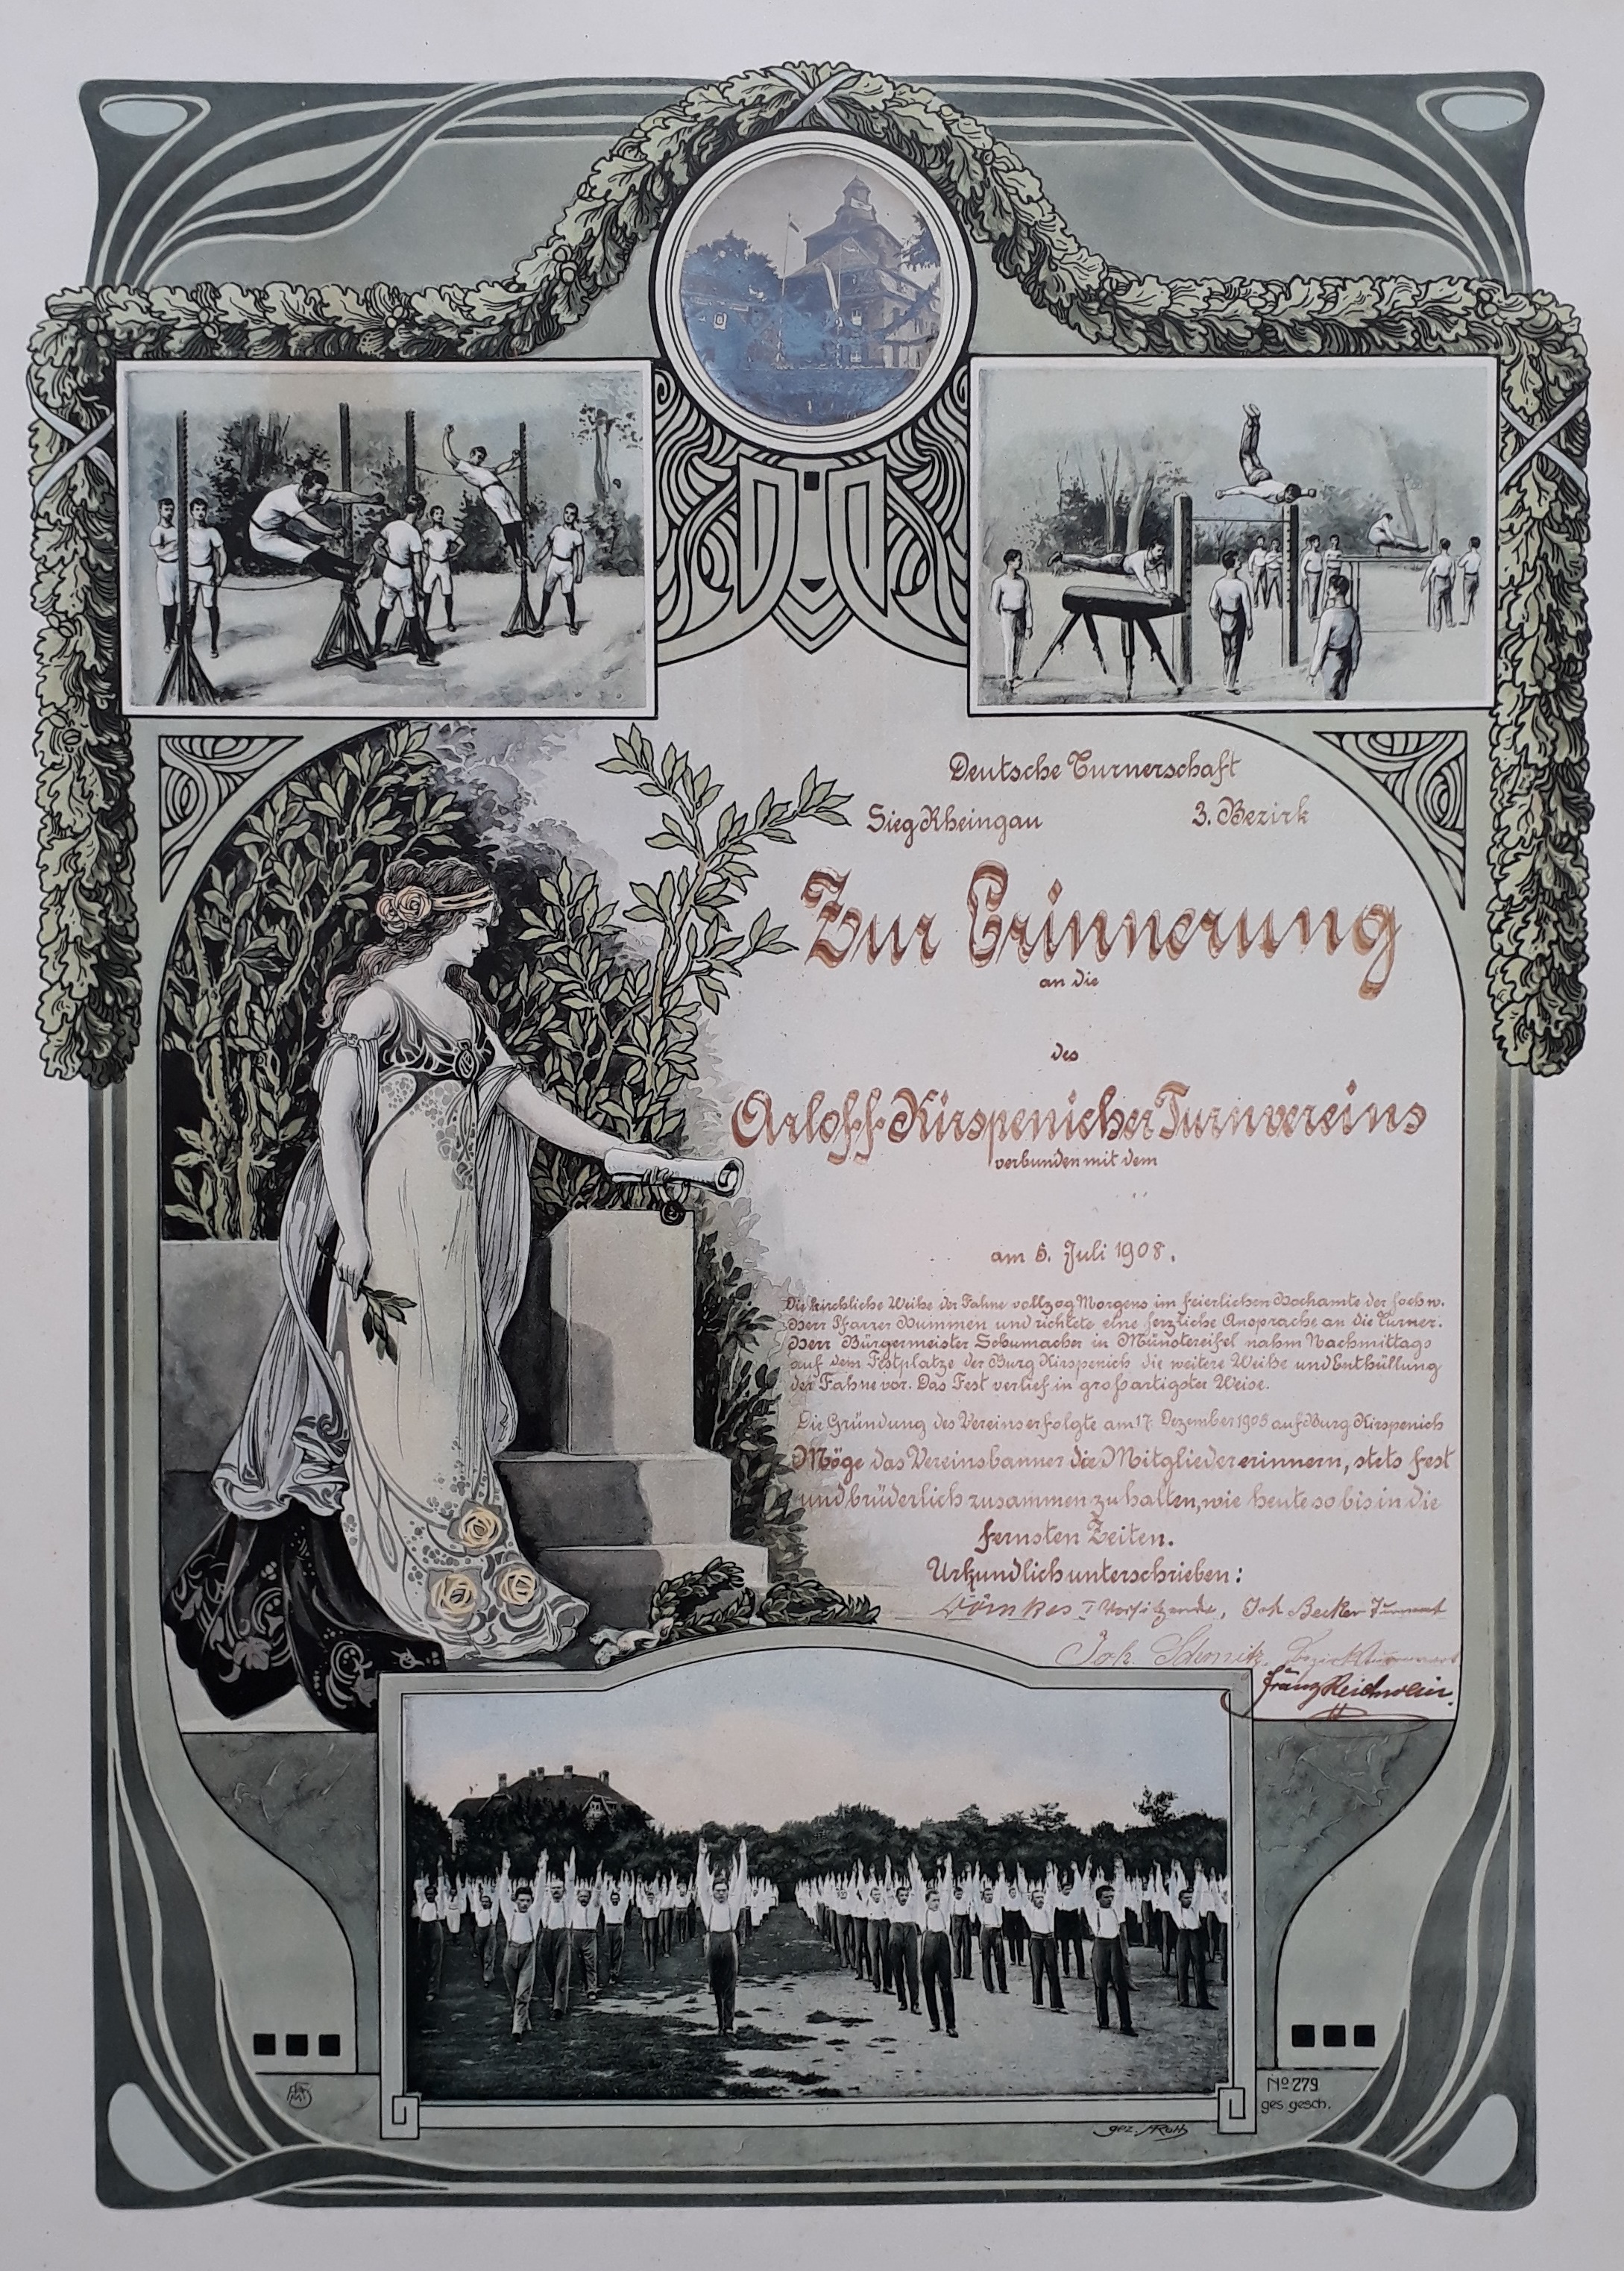 Deutsche Turnerschaft
SiegRheingau 3. Bezirk
Zur Erinnerung
an die
des
Arloff-Kirspenicher Turnvereins
verbunden mit dem
am 5. Juli 1908.
Die kirchliche Weihe der Fahne vollzog Morgens im feierlichen Hochamte der hochw.
Herr Pfarrer Hummen und richtete eine herzliche Ansprache an die Turner.
Herr Bürgermeister Schumacher in Münstereifel nahm Nachmittags
auf dem Festplatze der Burg Kirspenich die weitere Weihe und Enthüllung
der Fahne vor. Das Fest verlief in großartigster Weise.
Die Gründung des Vereins erfolgte am 17. Dezember 1905 auf Burg Kirspenich
Möge das Vereinsbanner die Mitglieder erinnern, stets fest
und brüderlich zusammen zu halten, wie heute so bis in die
fernsten Zeiten.
Urkundlich unterschrieben:
I Vorsitzende, Joh Becker Turnwart
Joh. Schmitz, Bezirksturnwart
Franz Reichwein.
No 279
ges. gesch.
gez. Roth